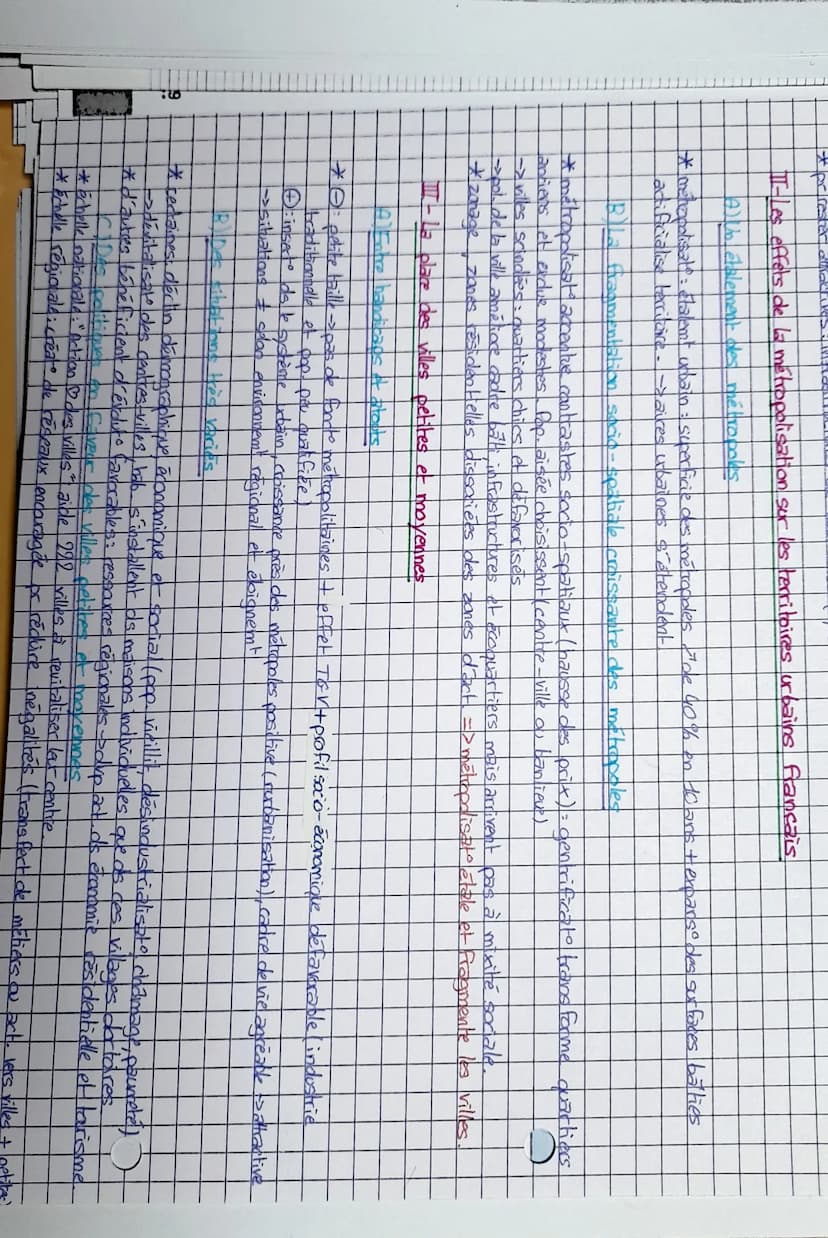 * pr rester attractives :
II-Les effets de la métropolisation sur les territoires urbains français
A) Un étalement des métropoles
* métropolisat° : étalemt urbain : superficie des métropoles ↗ de 40% en 10 ans + expans° des surfaces bâties
artificialise territoire. -> aires urbaines s'étendent
B) La fragmentation socio-spatiale croissante des métropoles
* métropolisat° accentue contrastes socio-spatiaux (hausse des prix) = gentrificat° transforme quartiers
anciens et exclue modestes. Pop. aisée choisissent (centre-ville ou banlieue)
-> villes scindées : quartiers chics et défavorisés
-> pol. de la ville améliore cadre bâti, infrastructures et écoquartiers mais arrivent pas à mixité sociale.
* zonage, zones résidentielles dissociées des zones d'act. => métropolisat° étale et fragmente les villes.
III- La place des villes petites et moyennes
A) Entre handicaps et atouts
* ⊖ : petite taille -> pas de fonct° métropolitaines + effet TGV + profil socio-économique défavorable (industrie
traditionnelle et pop. peu qualifiée)
⊕ : insert° ds le système urbain, croissance près des métropoles positive (rurbanisation), cadre de vie agréable -> attractive
-> situations ≠ selon environnemt régional et éloignemt
B) Des situations très variées
* certaines : déclin démographique, économique et social (pop. vieillit, désindustrialisat°, chômage, pauvreté)
-> dévitalisat° des centres-villes, hab. s'installent ds maisons individuelles que ds ces villages dortoires
* d'autres bénéficient d'évolut° favorables : ressources régionales -> dvp act. ds économie résidentielle et tourisme.
C) Des politiques en faveur des villes petites et moyennes
* échelle nationale : "Action ♡ des villes" aide 222 villes à revitaliser leur centre.
* échelle régionale : créat° de réseaux encouragée pr réduire inégalités (transfert de métiers ou act. vers villes + petites)